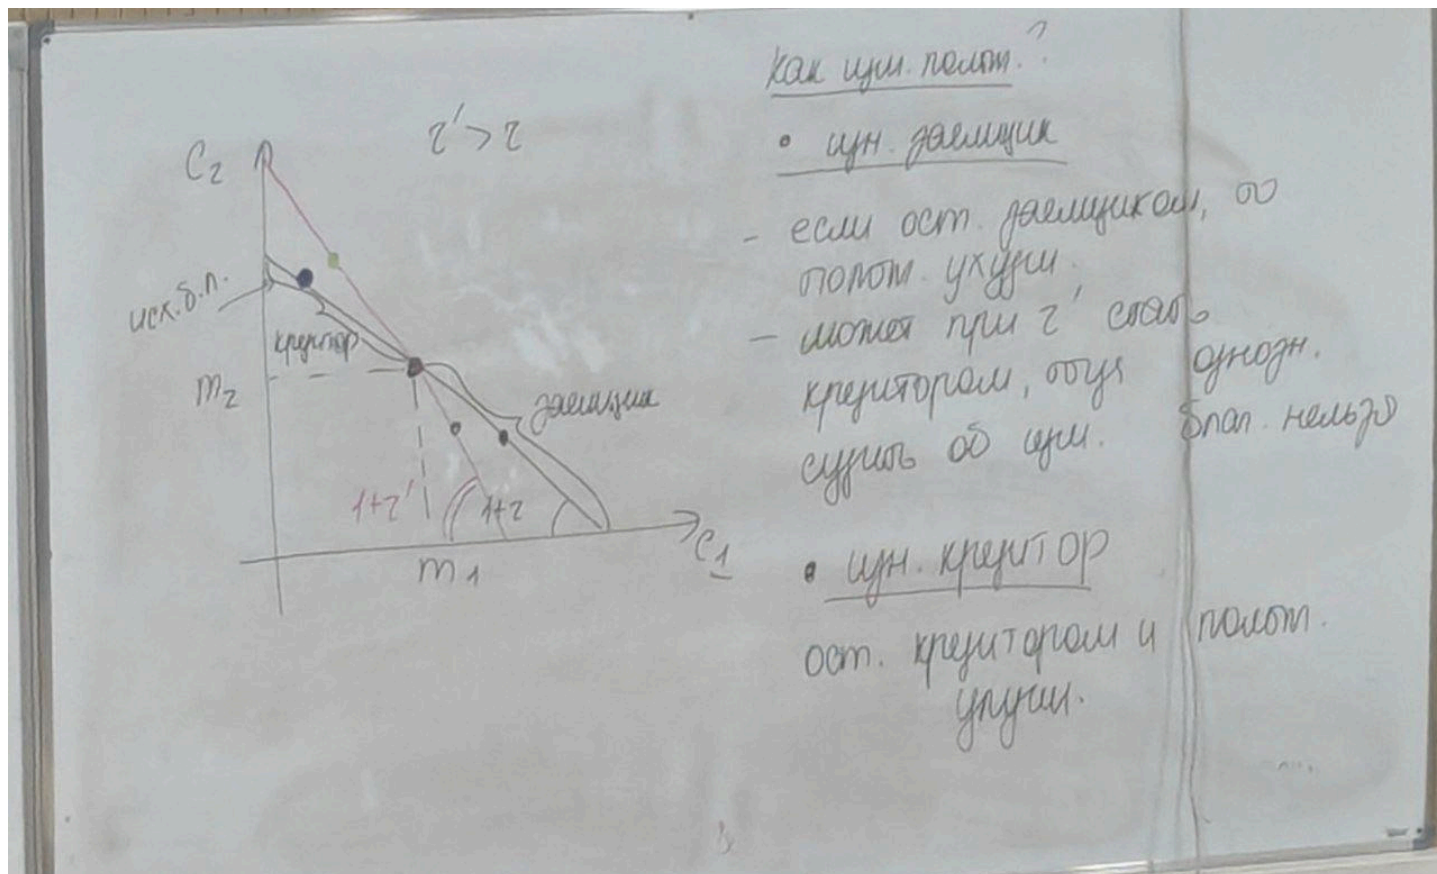 C₂
τ' > τ
исх. б.л.
кредитор
m₂
заемщик
1+τ'
1+τ
m₁
C₁
Как изм. полож.?
• изн. заемщик
- если ост. заемщиком, то
полож. ухудш.
- может при τ' стать
кредитором, тогда однозн.
судить об изм. благ. нельзя
• изн. кредитор
ост. кредитором и полож.
улучш.